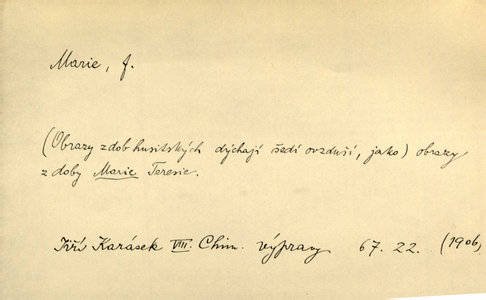 Marie, f.
(Obrazy z dob husitských dýchají šedí ovzduší, jako) obrazy
z doby Marie Terezie.
Jiří Karásek VIII. Chim. výpravy 67. 22. (1906)